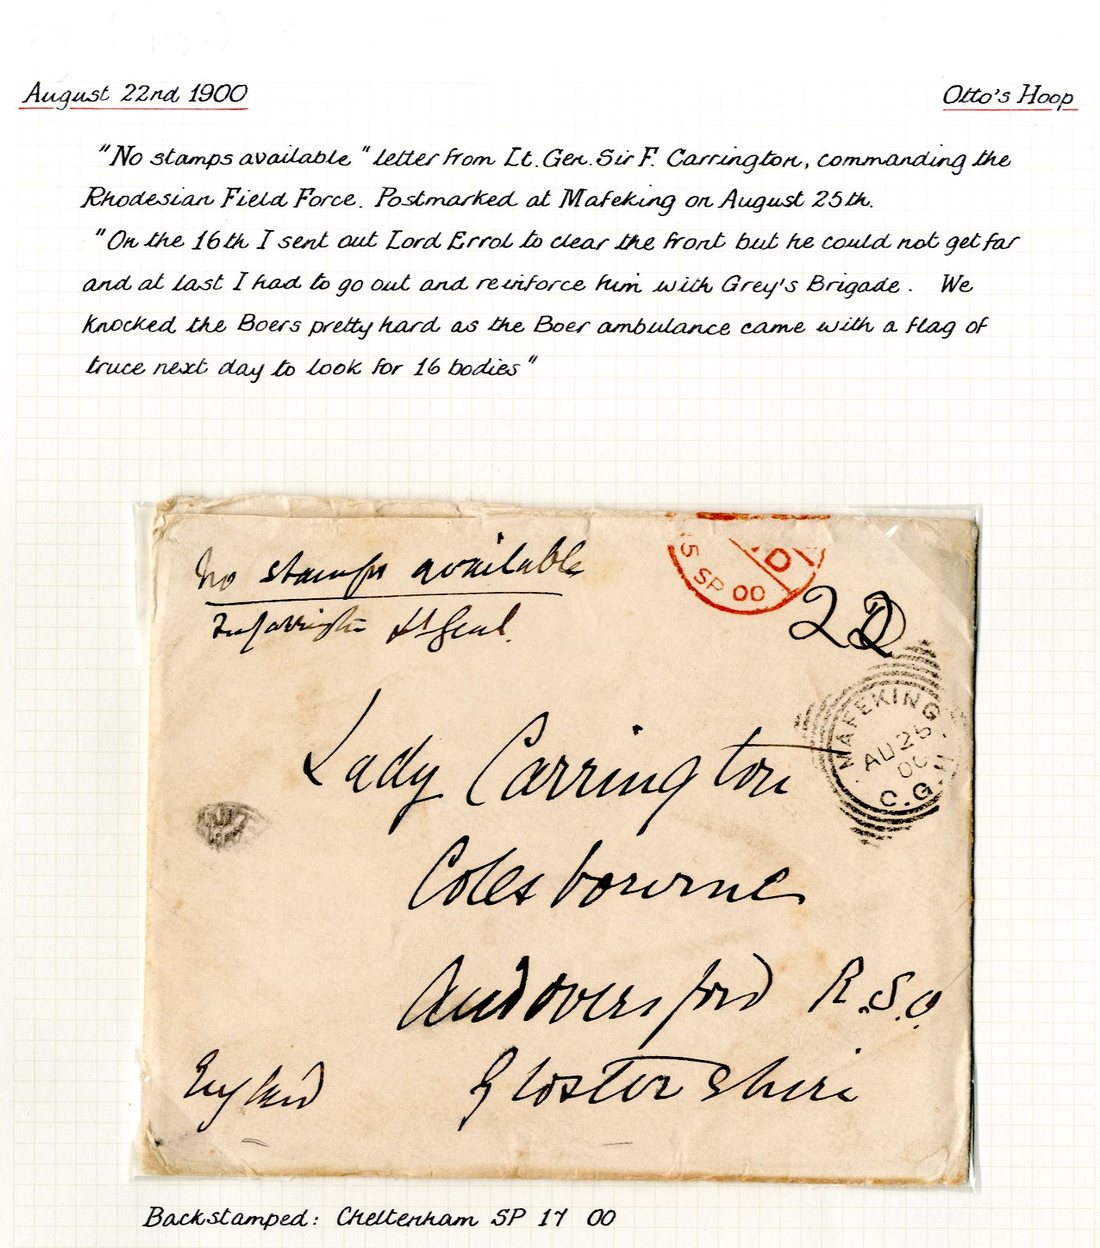 August 22nd 1900
Otto's Hoop
"No stamps available" letter from Lt. Gen. Sir F. Carrington, commanding the
Rhodesian Field Force. Postmarked at Mafeking on August 25th.
"On the 16th I sent out Lord Errol to clear the front but he could not get far
and at last I had to go out and reinforce him with Grey's Brigade. We
knocked the Boers pretty hard as the Boer ambulance came with a flag of
truce next day to look for 16 bodies"
No stamps available
Fredk Carrington Lt Genl.
D
5 SP 00
2D
MAFEKING
AU 25
00
C.G.H
Lady Carrington
Colesbourne
Andoversford R.S.O.
England
Glostershire
Backstamped: Cheltenham SP 17 00